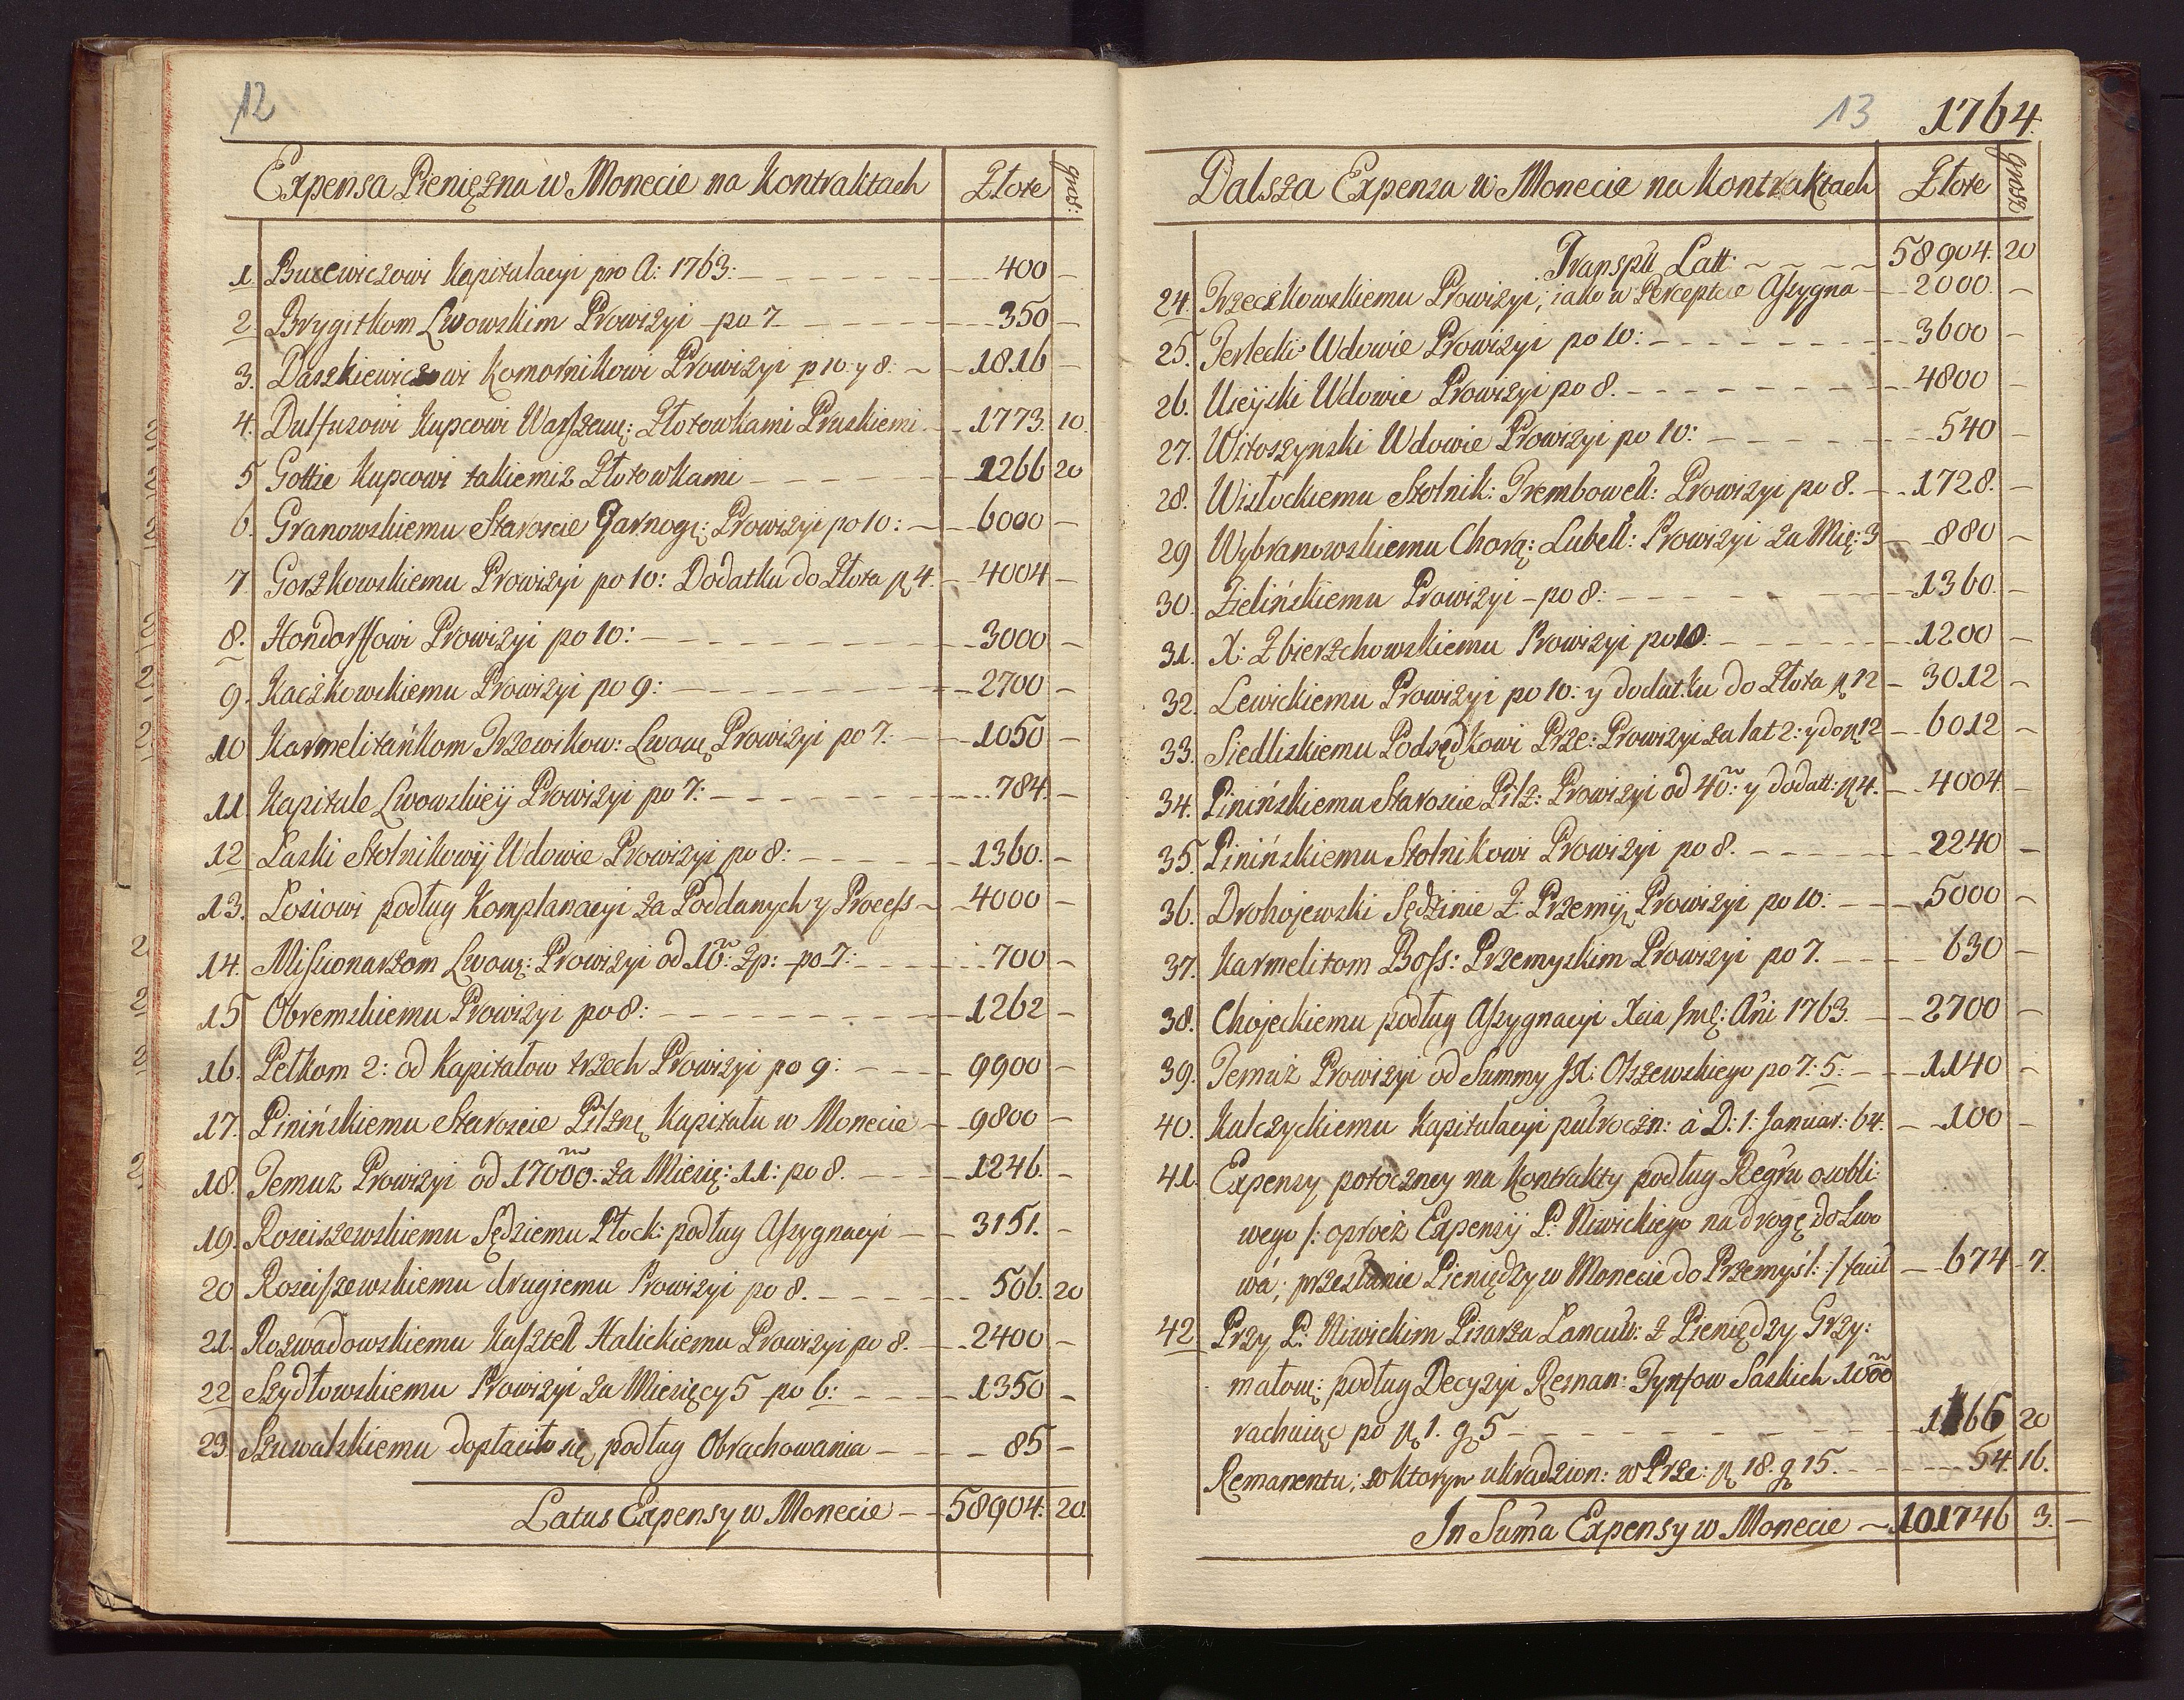 12
Expensa Pieniężna w Monecie na Kontraktach Złote gros:
1. Buxewiczowi Kapitulacyi pro A: 1763: 400 –
2 Brygitkom Lwowskim Prowizyi po 7 350 –
3. Daszkiewiczowi Komornikowi Prowizyi p 10 y 8: 1816 –
4. Dulfusowi Kupcowi Warszaw: Złotowkami Pruskiemi 1773. 10.
5 Gottie Kupcowi takiemiz Złotowkami 1266 20
6. Granowskiemu Staroscie Tarnogę: Prowizyi po 10: 6000 –
7 Gorzkowskiemu Prowizyi po 10: Dodatku do Złota 4. 4004 –
8. Hondorffowi Prowizyi po 10: 3000 –
9. Kaczkowskiemu Prowizyi po 9: 2700 –
10 Karmelitańkom Trzewikow: Lwow Prowizyi po 7. 1050 –
11. Kapitule Lwowskiey Prowizyi po 7: 784. –
12 Laski Stolnikowy Wdowie Prowizyi po 8: 1360. –
13. Łosiowi podług Komplanacyi za Poddanych y Process 4000 –
14. Missionarzom Lwowę: Prowizyi od 10: Zp: po 7: 700 –
15 Obremskiemu Prowizyi po 8: 1262 –
16. Pelkom 2: od Kapitałow trzech Prowizyi po 9: 9900 –
17. Pinińskiemu Staroscie Pilznę Kapitału w Monecie 9800 –
18. Temuz Prowizyi od 17000. za Miesię: 11: po 8. 1246. –
19. Rosciszewskiemu Sędziemu Płock: podług Assygnacyi 3151. –
20 Rosciszewskiemu drugiemu Prowizyi po 8. 506. 20
21. Rozwadowskiemu Kasztell Halickiemu Prowizyi po 8. 2400 –
22 Szydłowskiemu Prowizyi za Miesięcy 5 po 6: 1350 –
23. Szuwalskiemu dopłaciło się podług Obrachowania 85 –
Latus Expensy w Monecie 58904. 20.
13 1764.
Dalsza Expensa w Monecie na Kontraktach Złote grosz
Transpt Latt: 58904. 20
24. Trzeczkowskiemu Prowizyi, iako w Percepcie Assygna 2000. –
25. Terlecki Wdowie Prowizyi po 10: 3600 –
26. Uieyski Wdowie Prowizyi po 8. 4800 –
27. Witoszynski Wdowie Prowizyi po 10: 540 –
28. Wisłockiemu Stolnik: Trembowell: Prowizyi po 8. 1728. –
29 Wybranowskiemu Chorą: Lubell: Prowizyi za Mię: 3 880 –
30. Zielińskiemu Prowizyi po 8: 1360. –
31. X: Zbierzchowskiemu Prowizyi po 10: 1200 –
32. Lewickiemu Prowizyi po 10: y dodatku do Złota 12 3012 –
33. Siedliskiemu Podsędkowi Prze: Prowizyi za lat 2: y do 12 6012 –
34. Pinińskiemu Staroscie Pilz: Prowizyi od 40: y dodatt: 4. 4004. –
35. Pinińskiemu Stolnikowi Prowizyi po 8. 2240 –
36. Drohojewski Sędzinie Z: Przemy Prowizyi po 10: 5000 –
37. Karmelitom Boss: Przemyskim Prowizyi po 7. 630 –
38. Chojeckiemu podług Assygnacyi Xcia Jmę: Ani 1763. 2700 –
39. Temuż Prowizyi od Summy JX: Olszewskiego po 7: 5: 1140 –
40. Kulczyckiemu Kapitulacyi pułroczn: à D: 1: Januar: 64. 100 –
41. Expensy potoczney na Kontrakty podług Regru osobli:
wego /: oprocz Expensy P. Niwickiego na drogę do Lwo
wa, przesłanie Pieniędzy w Monecie do Przemysl: :/ facit 674 7.
42 Przy P. Niwickim Pisarzu Lancuc: z Pieniędzy Grzy:
małow: podług Decyzyi Reman: Tynfow Saskich 1000
rachuiąc po 1. g 5 1166 20
Remanentu, w ktorym ukradzion: w Prze: 18. g 15. 54. 16.
In Suma Expensy w Monecie 101746 3. –